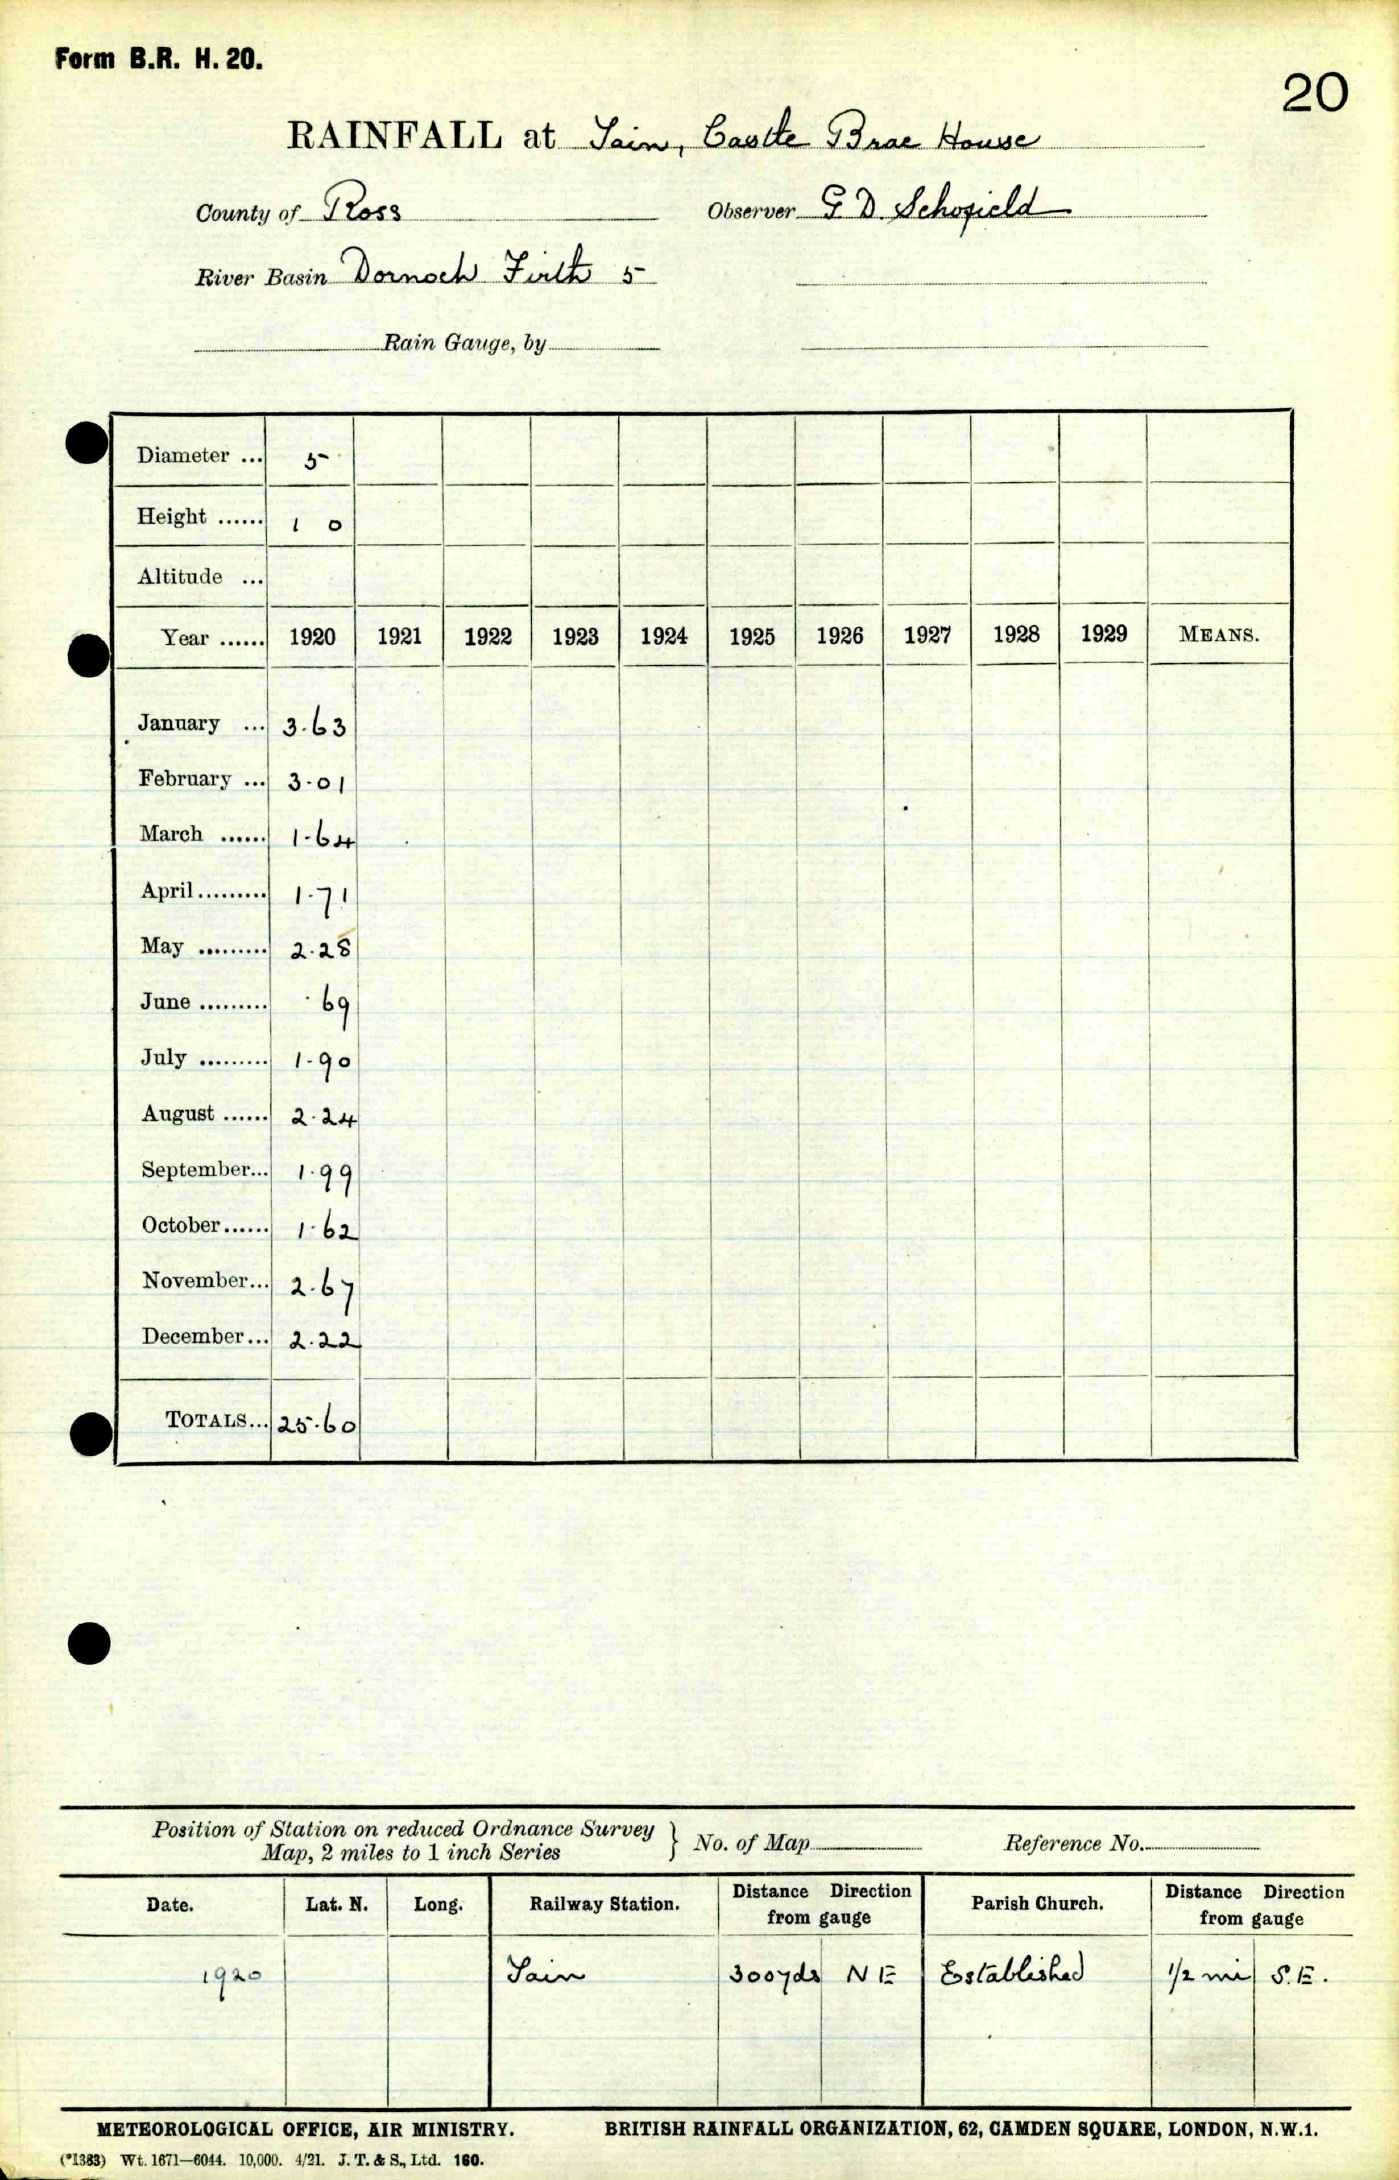 Form B.R. H. 20.
20
RAINFALL at Tain, Castle Brae House
County of Ross Observer G. D. Schofield
River Basin Dornoch Firth 5
Rain Gauge, by
Diameter ... 5
Height ...... 1 0
Altitude ...
Year ...... 1920 1921 1922 1923 1924 1925 1926 1927 1928 1929 MEANS.
January ... 3.63
February ... 3.01
March ...... 1.64
April ......... 1.71
May ......... 2.28
June ......... .69
July ......... 1.90
August ...... 2.24
September... 1.99
October ...... 1.62
November... 2.67
December... 2.22
TOTALS... 25.60
Position of Station on reduced Ordnance Survey
Map, 2 miles to 1 inch Series } No. of Map Reference No.
Date. Lat. N. Long. Railway Station. Distance Direction from gauge Parish Church. Distance Direction from gauge
1920 Tain 300yds N E Established 1/2 mi S.E.
METEOROLOGICAL OFFICE, AIR MINISTRY. BRITISH RAINFALL ORGANIZATION, 62, CAMDEN SQUARE, LONDON, N.W.1.
(*1383) Wt. 1671—6044. 10,000. 4/21. J. T. & S., Ltd. 160.